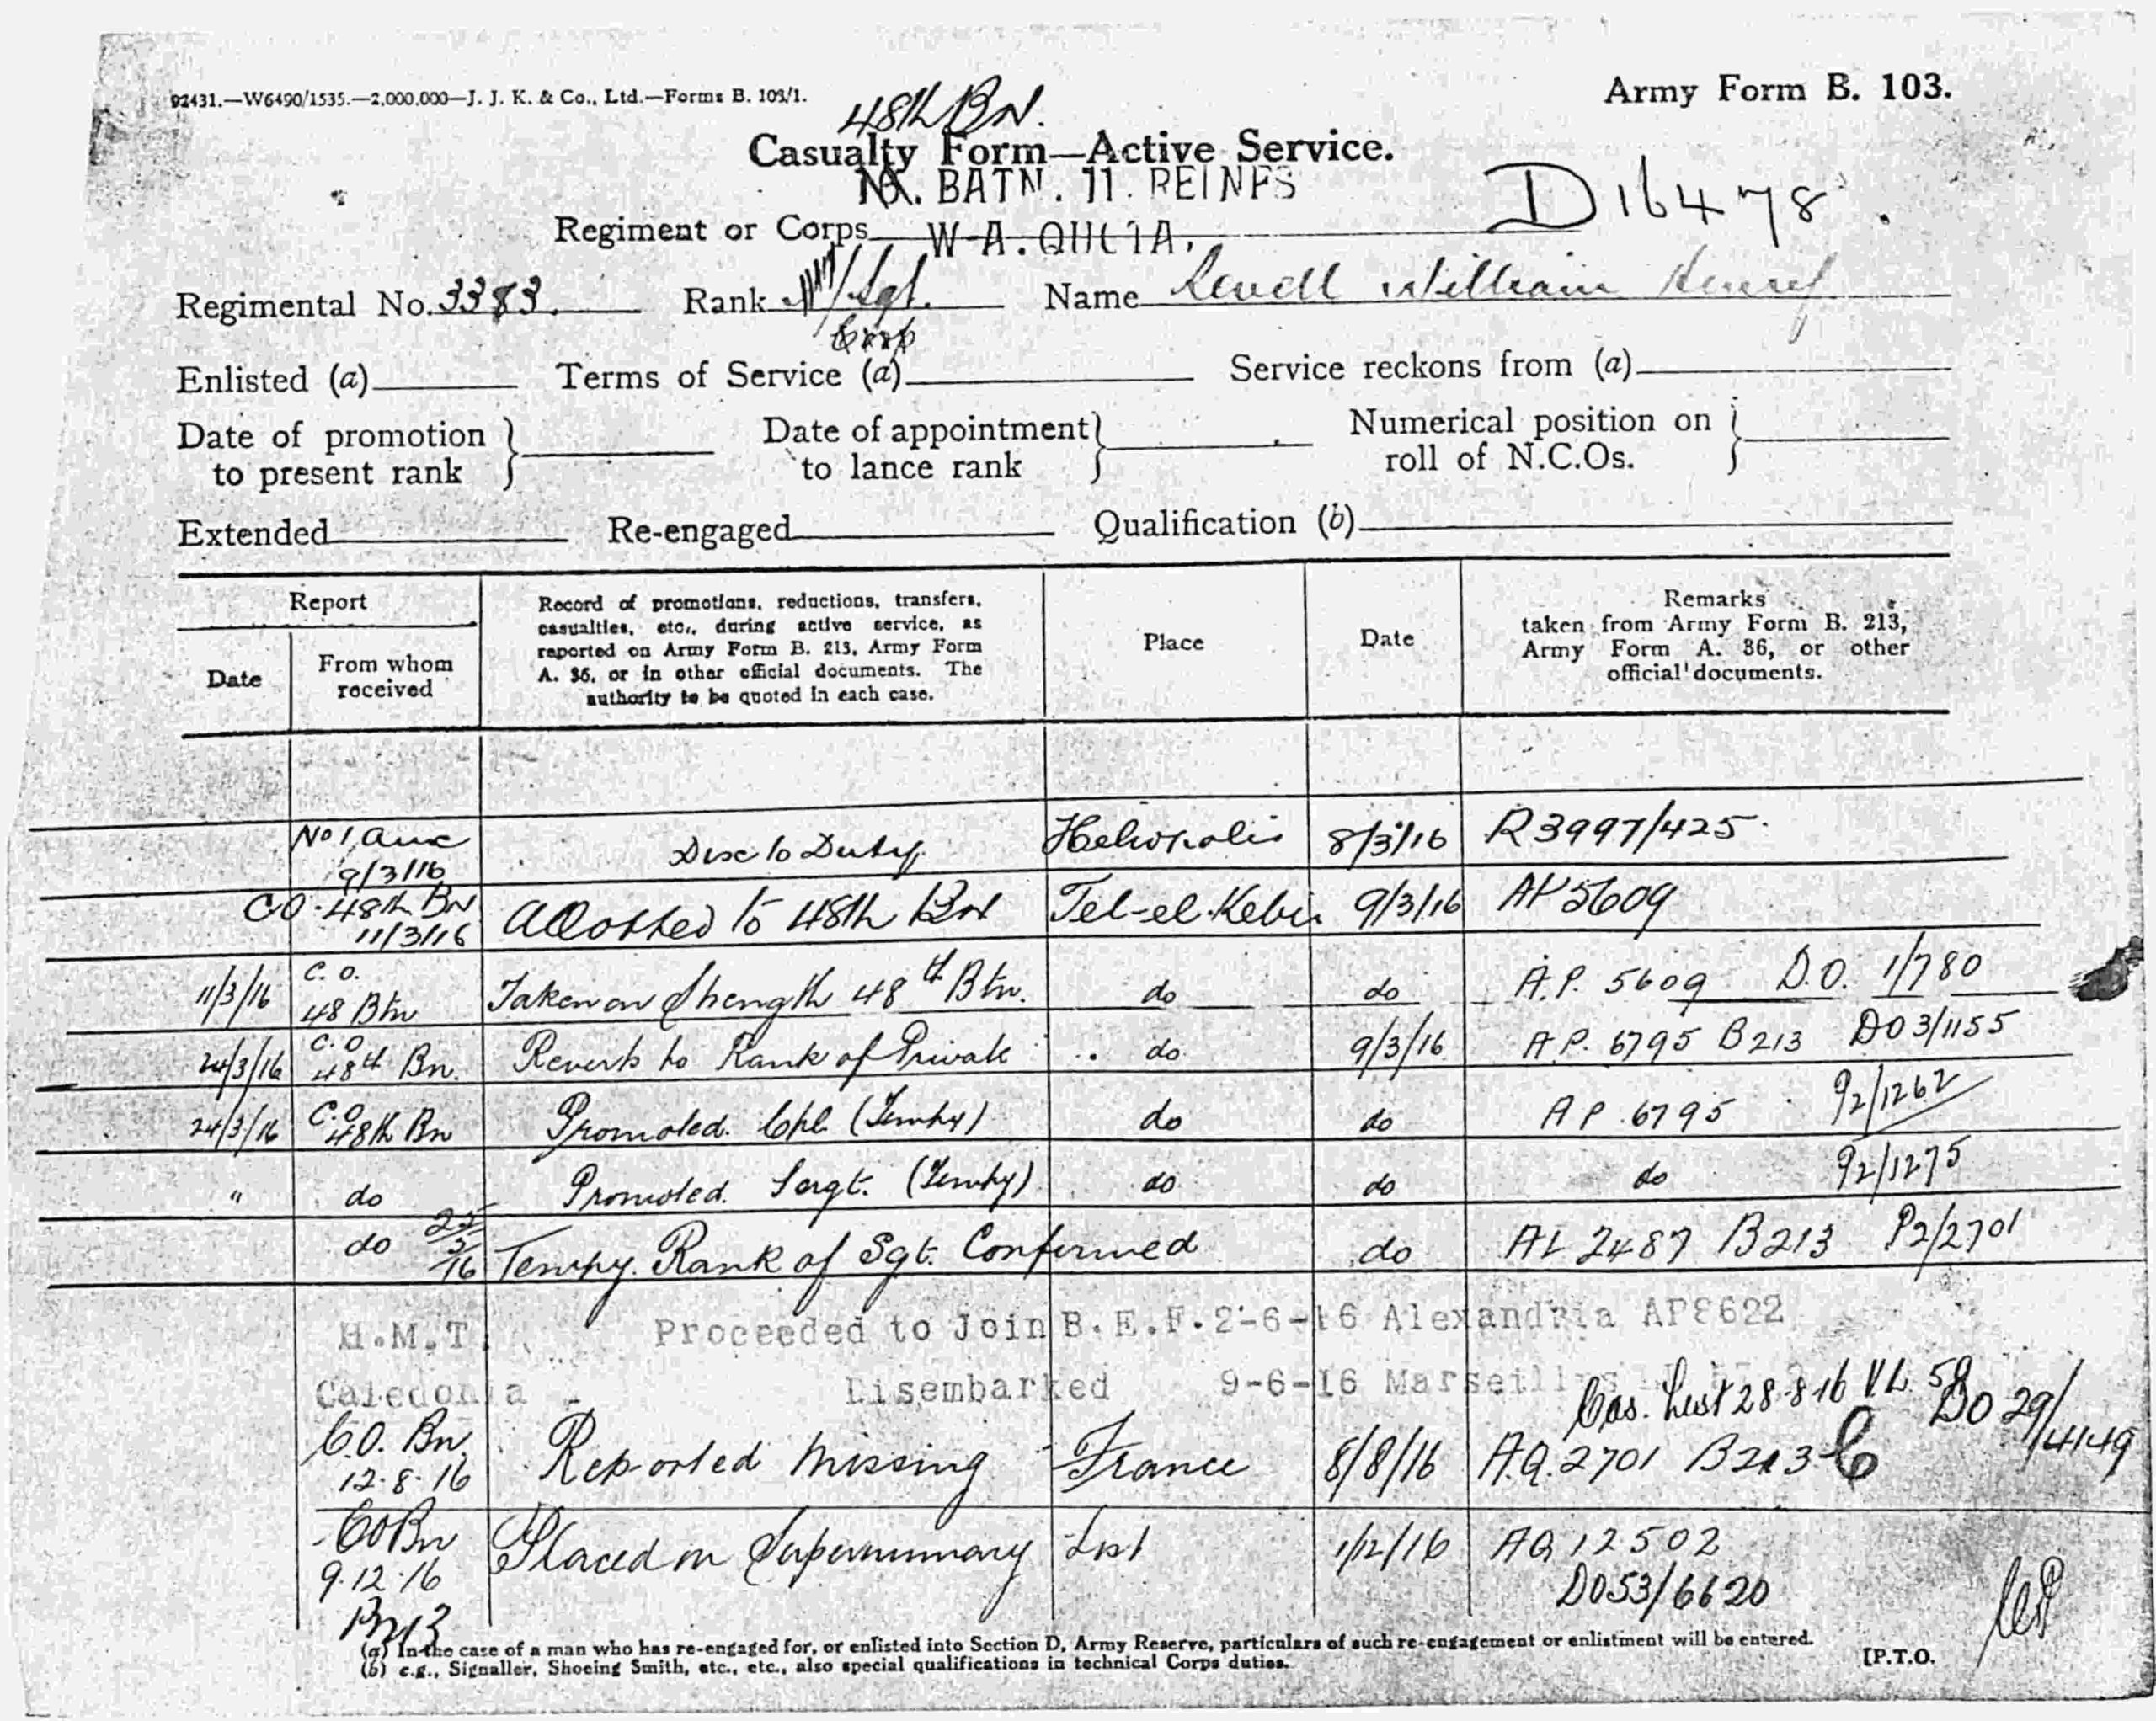 92431.—W6490/1535.—2,000,000—J. J. K. & Co., Ltd.—Forms B. 103/1.
Army Form B. 103.
48th BN.
Casualty Form—Active Service.
BATN. 11. REINFS
D16478.
Regiment or Corps
Regimental No. 3383. Rank Sgt. Name Revell William Henry
Enlisted (a) Terms of Service (a) Service reckons from (a)
Date of promotion to present rank } Date of appointment to lance rank } Numerical position on roll of N.C.Os. }
Extended Re-engaged Qualification (b)
Report
Date
From whom received
Record of promotions, reductions, transfers,
casualties, etc., during active service, as
reported on Army Form B. 213, Army Form
A. 36, or in other official documents. The
authority to be quoted in each case.
Place
Date
Remarks
taken from Army Form B. 213,
Army Form A. 36, or other
official documents.
No 1 9/3/16 Disc to Duty. Heliopolis 8/3/16 R3997/425
CO. 48th BN 11/3/16 Allotted to 48th BN Tel-el-Kebir 9/3/16 AP5609
11/3/16 C.O. 48 Btn Taken on Strength 48th Btn. do do A.P. 5609 D.O. 1/780
24/3/16 C.O 48th Bn. Reverts to Rank of Private do 9/3/16 A.P. 6795 B213 DO3/1155
24/3/16 C.O 48th Bn Promoted. Cpl. (Tempy) do do AP.6795 P2/1262
" do Promoted. Sergt. (Tempy) do do do P2/1275
do 25/5/16 Tempy. Rank of Sgt. Confirmed do AL 2487 B213 P2/2701
H.M.T. Proceeded to Join B.E.F. 2-6-16 Alexandria AP8622
Caledonia Disembarked 9-6-16 Marseilles
Cas. List 28.8.16 VL 58 DO 29/4149
C.O. Bn. 12.8.16 Reported Missing France 8/8/16 A.Q.2701 B213
CO Bn 9.12.16 Placed on Supernumary List 1/12/16 AQ 12502
DO53/6620
B213
(a) In the case of a man who has re-engaged for, or enlisted into Section D, Army Reserve, particulars of such re-engagement or enlistment will be entered.
(b) e.g., Signaller, Shoeing Smith, etc., etc., also special qualifications in technical Corps duties.
[P.T.O.